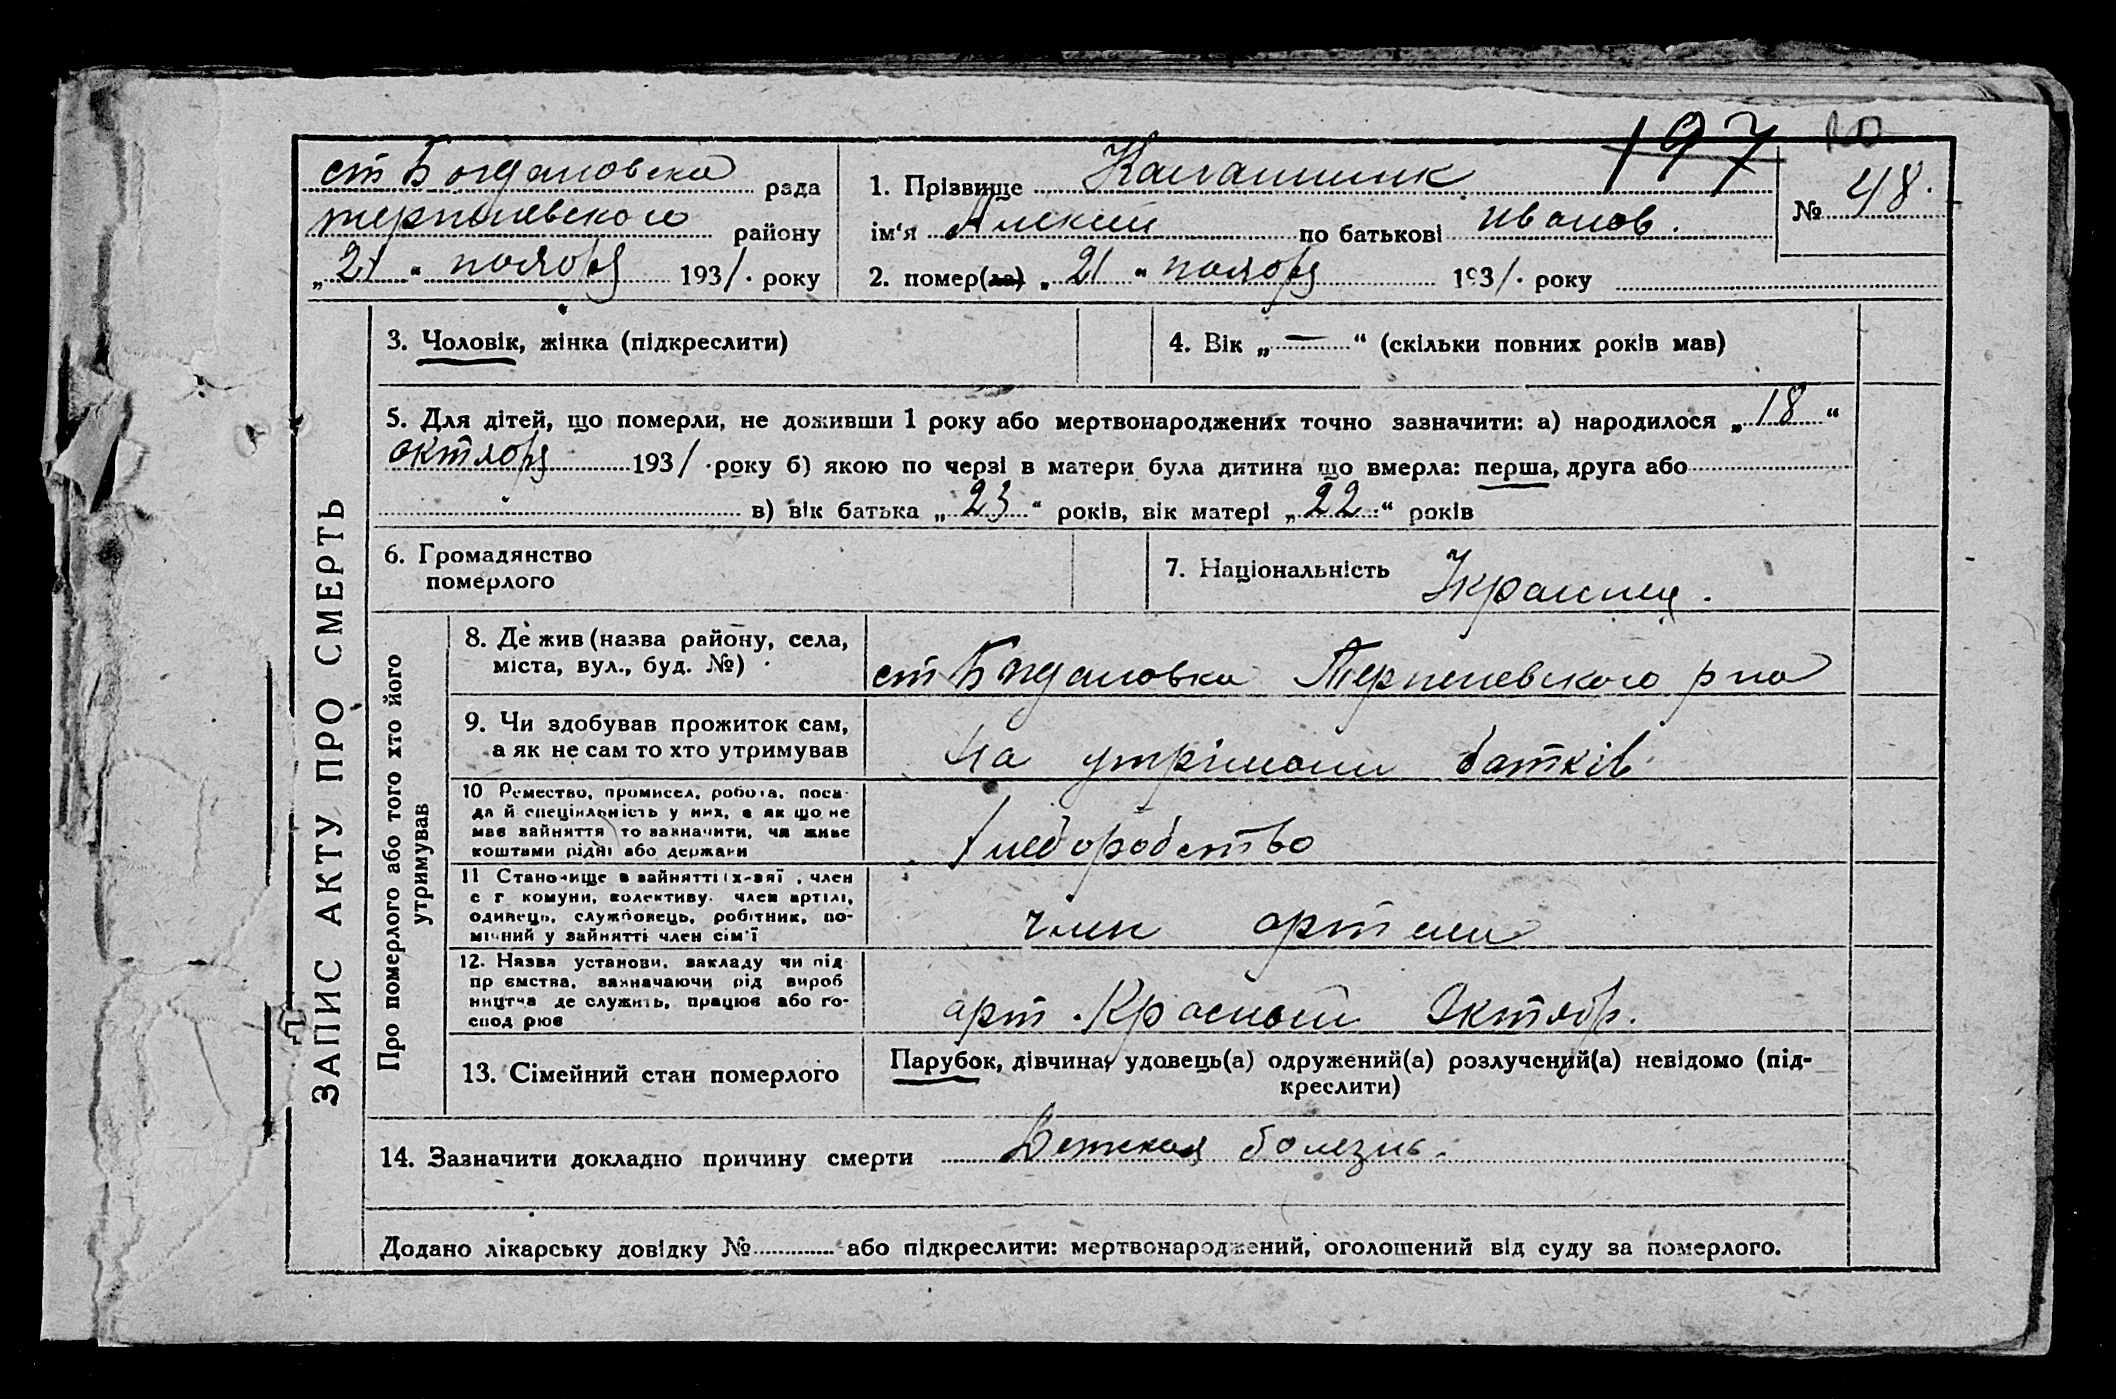 197
ст Богдановска рада
1. Прізвище
№ 48.
терпеневского району
ім'я Алексей по батькові Иванов.
„21“ ноября 1931. року
2. помер(ла) „21“ ноября 1931. року
ЗАПИС АКТУ ПРО СМЕРТЬ
3. Чоловік, жінка (підкреслити)
4. Вік „—“ (скільки повних років мав)
5. Для дітей, що померли, не доживши 1 року або мертвонароджених точно зазначити: а) народилося „18“
октября 1931. року б) якою по черзі в матери була дитина що вмерла: перша, друга або
в) вік батька „23“ років, вік матері „22“ років
6. Громадянство
померлого
7. Національність Украинец.
Про померлого або того хто його
утримував
8. Де жив (назва району, села,
міста, вул., буд. №)
ст Богдановка Терпеневского рна
9. Чи здобував прожиток сам,
а як не сам то хто утримував
На утрімани батків
10 Ремество, промисел, робота, поса-
да й спеціяльність у них, а як що не
мав зайняття то зазначити, чи живе
коштами рідні або держави
Хлеборобство
11 Становище в зайнятті (х-зяї , член
с г комуни, колективу. член артілі,
одинець, службовець, робітник, по-
мічний у зайнятті член сім'ї
член артели
12. Назва установи, закладу чи під
пр ємства, зазначаючи рід вироб
ництва де служить, працює або го-
спод рює
арт. Красный Октябр.
13. Сімейний стан померлого
Парубок, дівчина, удовець(а) одружений(а) розлучений(а) невідомо (під-
креслити)
14. Зазначити докладно причину смерти Детская болезнь.
Додано лікарську довідку № або підкреслити: мертвонароджений, оголошений від суду за померлого.